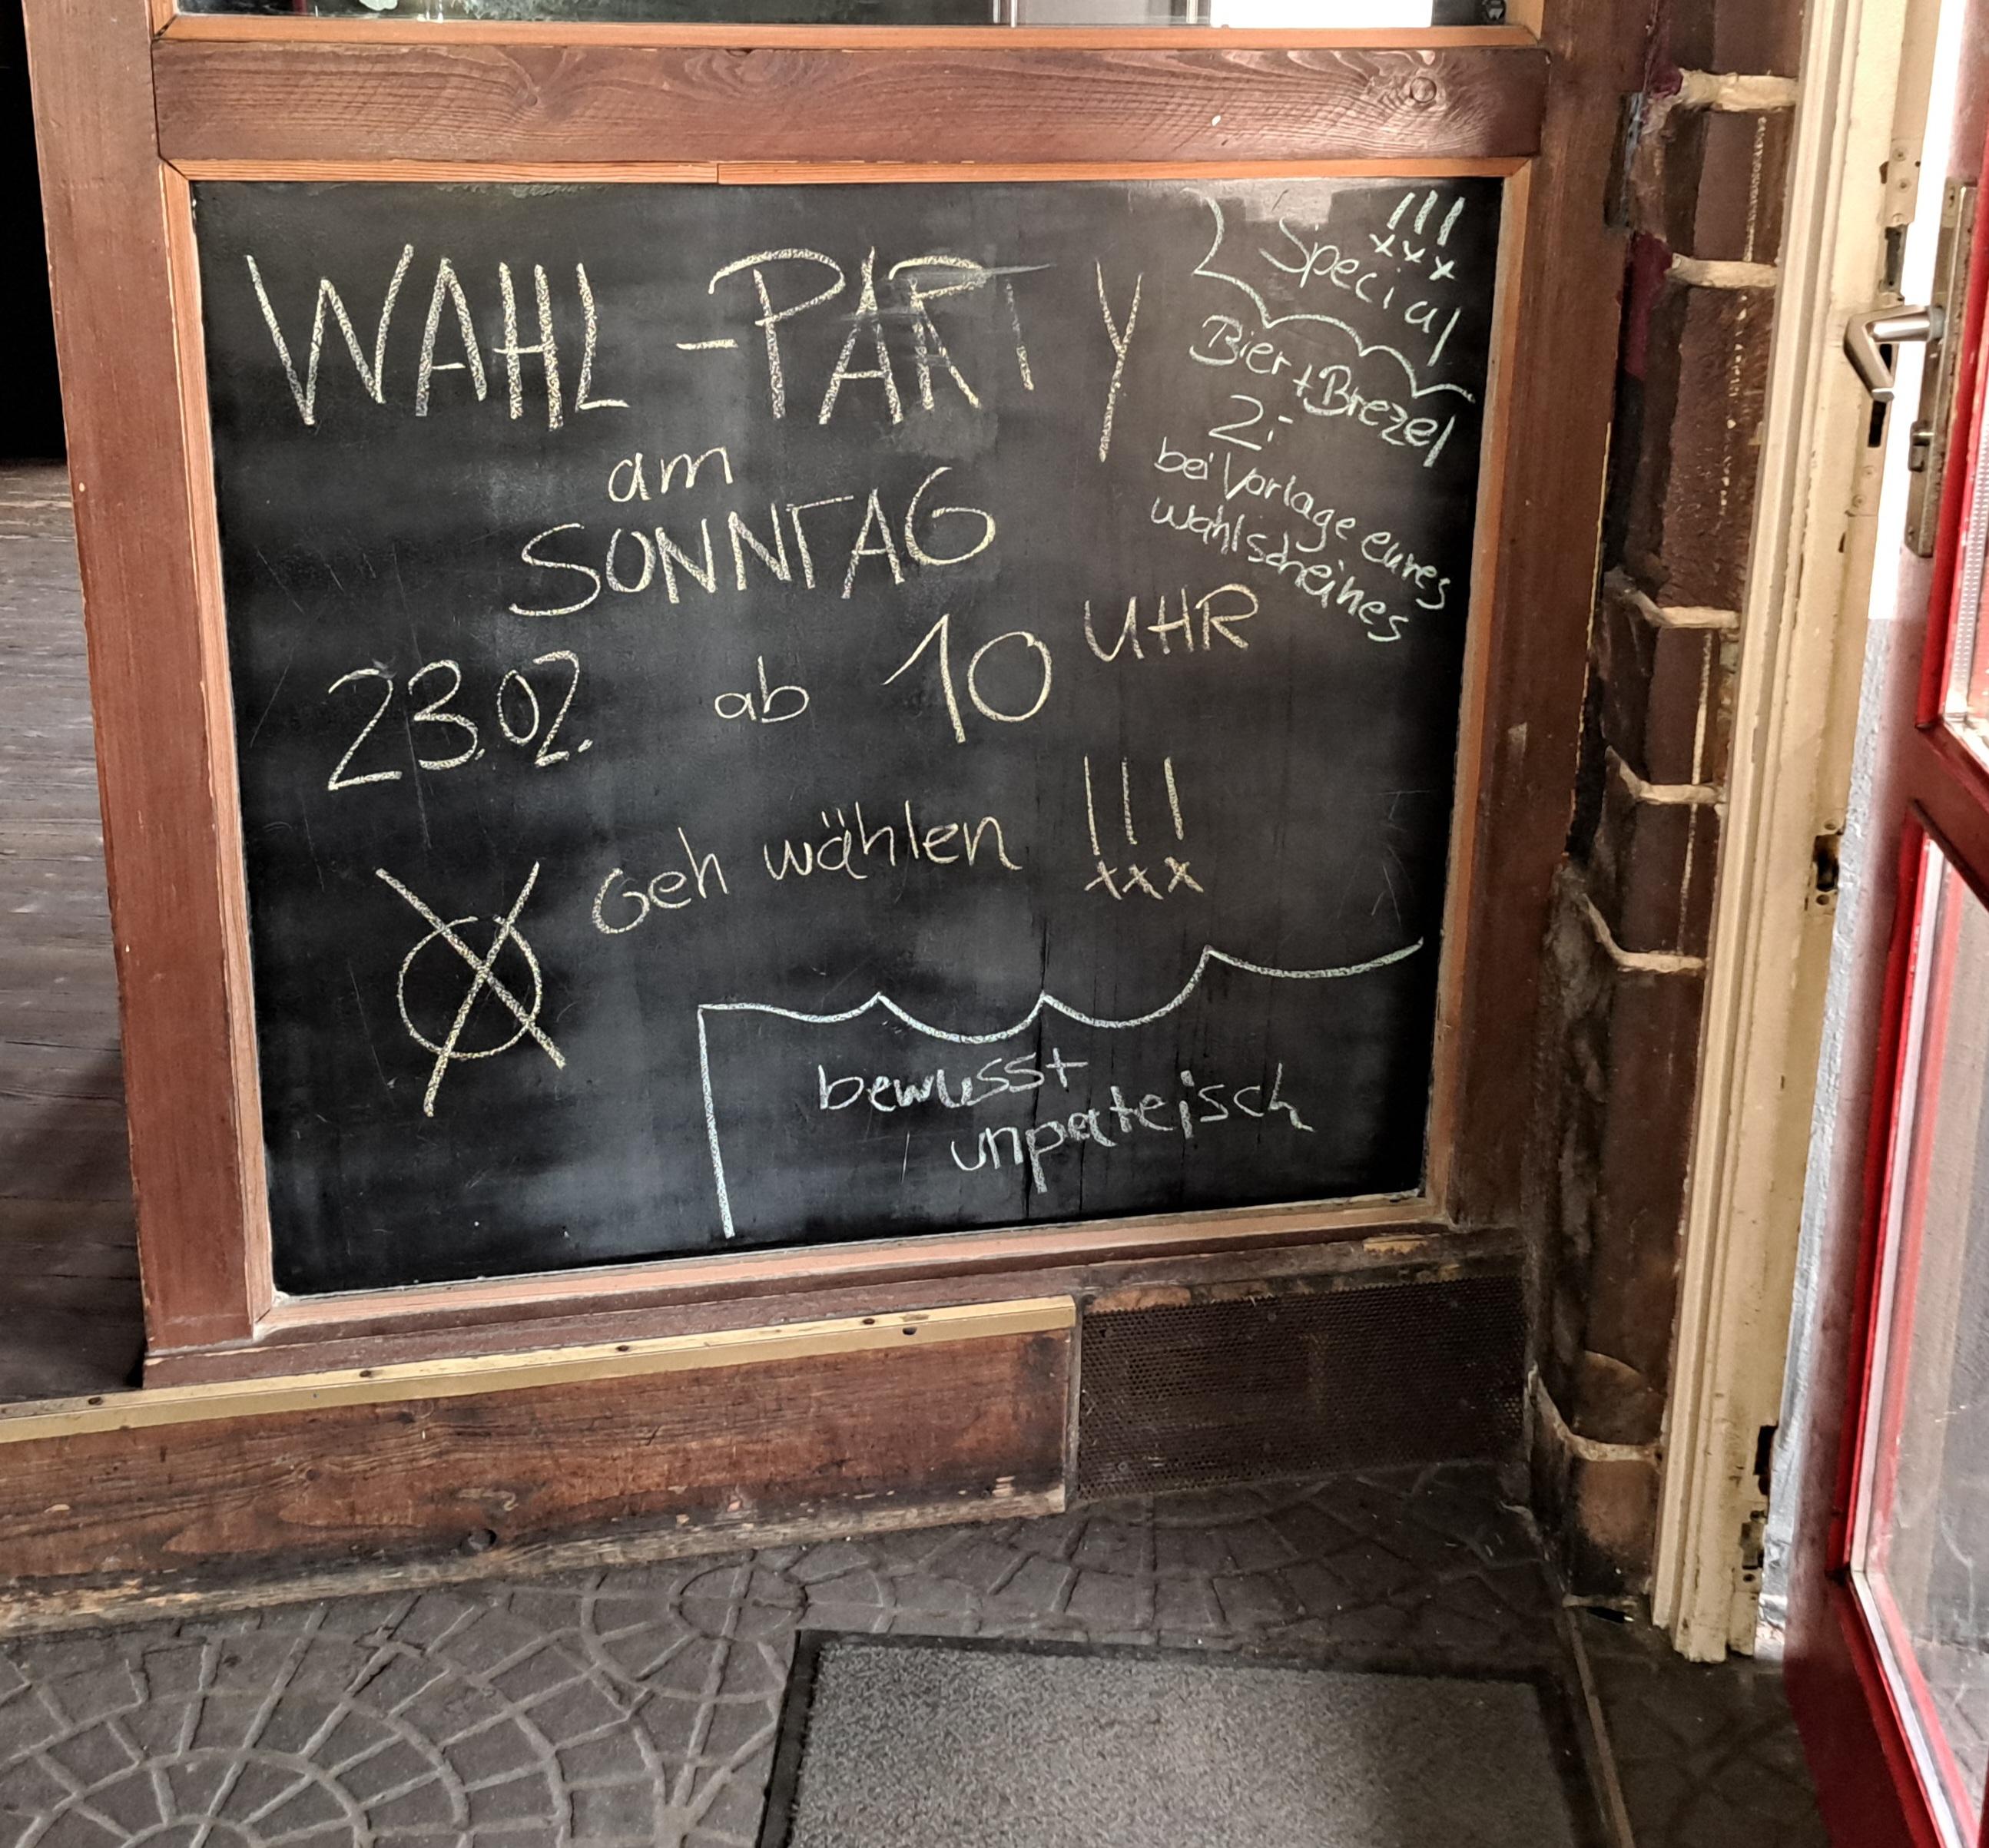 WAHL-PARTY
am
SONNTAG
23.02. ab 10 UHR
Geh wählen !!!
bewusst
unpateisch
Special !!!
Bier + Brezel
2,-
bei Vorlage eures
wahlscheines